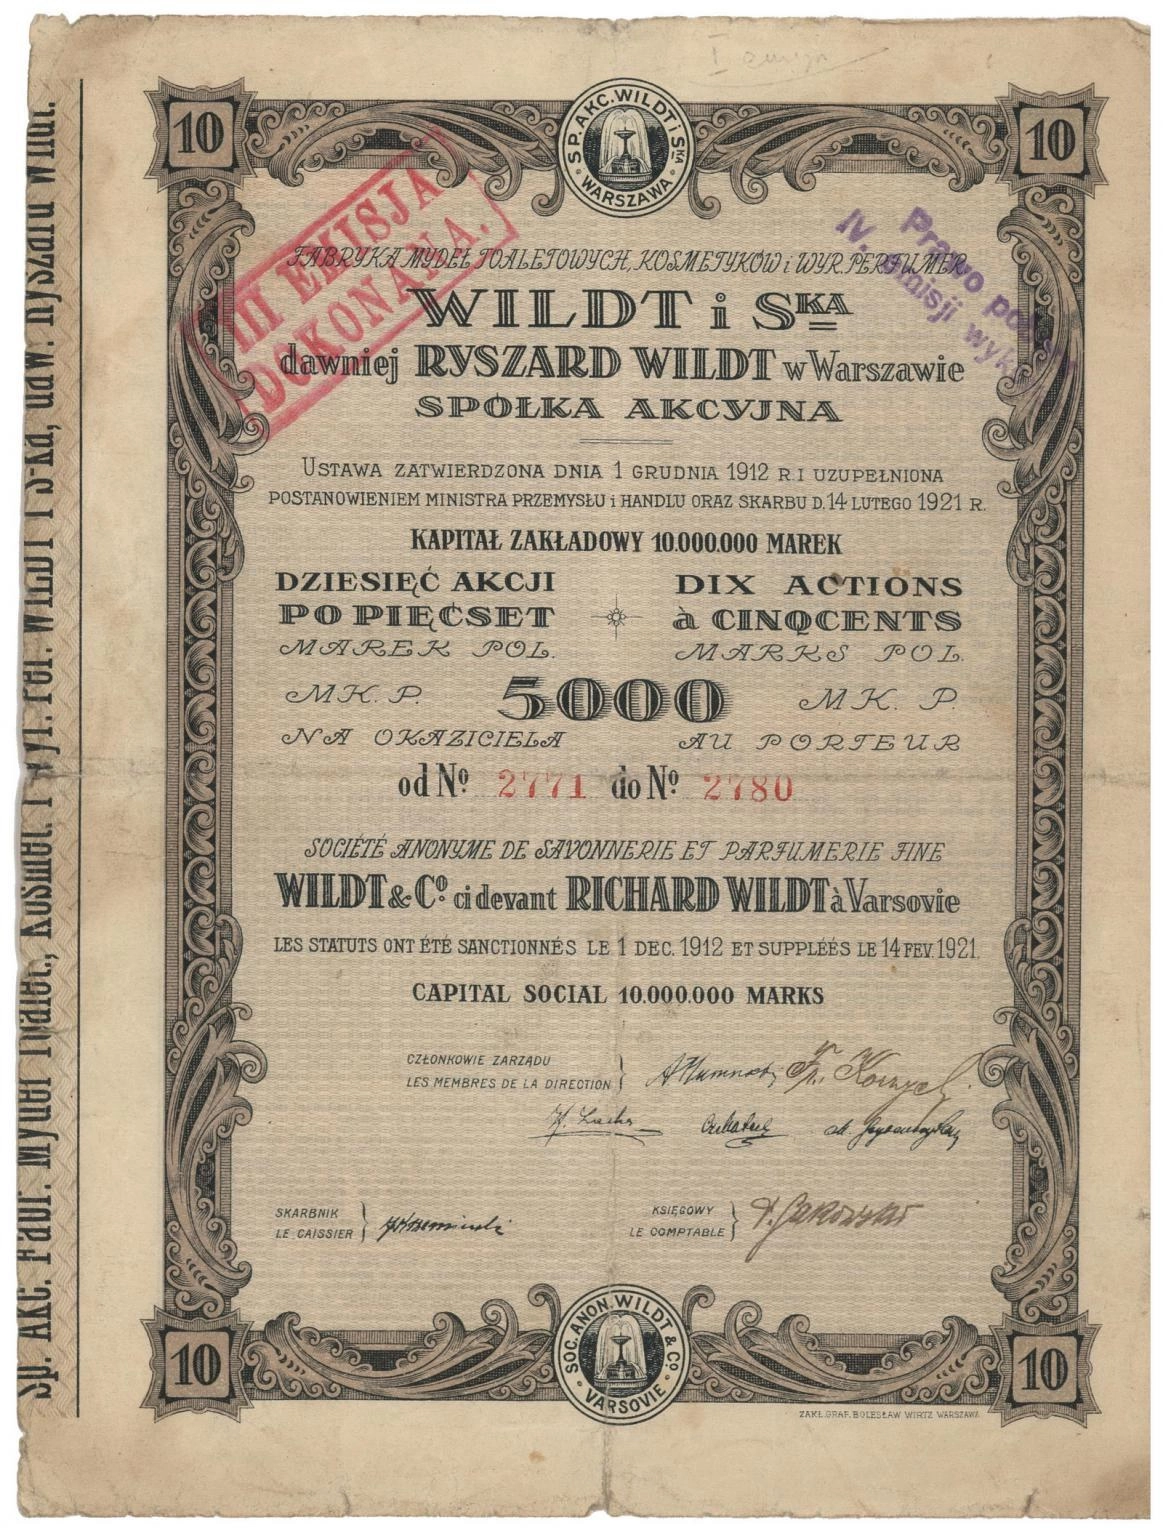 I
10
SP. AKC. WILDT i SKA
WARSZAWA
10
III EMISJA
DOKONANA.
Prawo
IV. emisji
FABRYKA MYDEŁ TOALETOWYCH, KOSMETYKÓW i WYR. PERFUMER.
WILDT i SKA
dawniej RYSZARD WILDT w Warszawie
SPÓŁKA AKCYJNA
USTAWA ZATWIERDZONA DNIA 1 GRUDNIA 1912 R. I UZUPEŁNIONA
POSTANOWIENIEM MINISTRA PRZEMYSŁU i HANDLU ORAZ SKARBU D. 14 LUTEGO 1921 R.
KAPITAŁ ZAKŁADOWY 10.000.000 MAREK
DZIESIĘĆ AKCJI
PO PIĘĆSET
MAREK POL.
MK. P.
NA OKAZICIELA
DIX ACTIONS
à CINQCENTS
MARKS POL.
MK. P.
AU PORTEUR
5000
od No 2771 do No 2780
SOCIÉTÉ ANONYME DE SAVONNERIE ET PARFUMERIE FINE
WILDT & Co. ci devant RICHARD WILDT à Varsovie
LES STATUTS ONT ÉTÉ SANCTIONNÉS LE 1 DEC. 1912 ET SUPPLÉÉS LE 14 FEV. 1921.
CAPITAL SOCIAL 10.000.000 MARKS
CZŁONKOWIE ZARZĄDU
LES MEMBRES DE LA DIRECTION
SKARBNIK
LE CAISSIER
KSIĘGOWY
LE COMPTABLE
10
SOC. ANON. WILDT & Co
VARSOVIE
10
ZAKŁ. GRAF. BOLESŁAW WIRTZ WARSZAWA
Sp. Akc. Fabr. Mydeł Toalet., Kosmet. i Wyr. Per. WILDT i S-ka, daw. Ryszard Wildt.